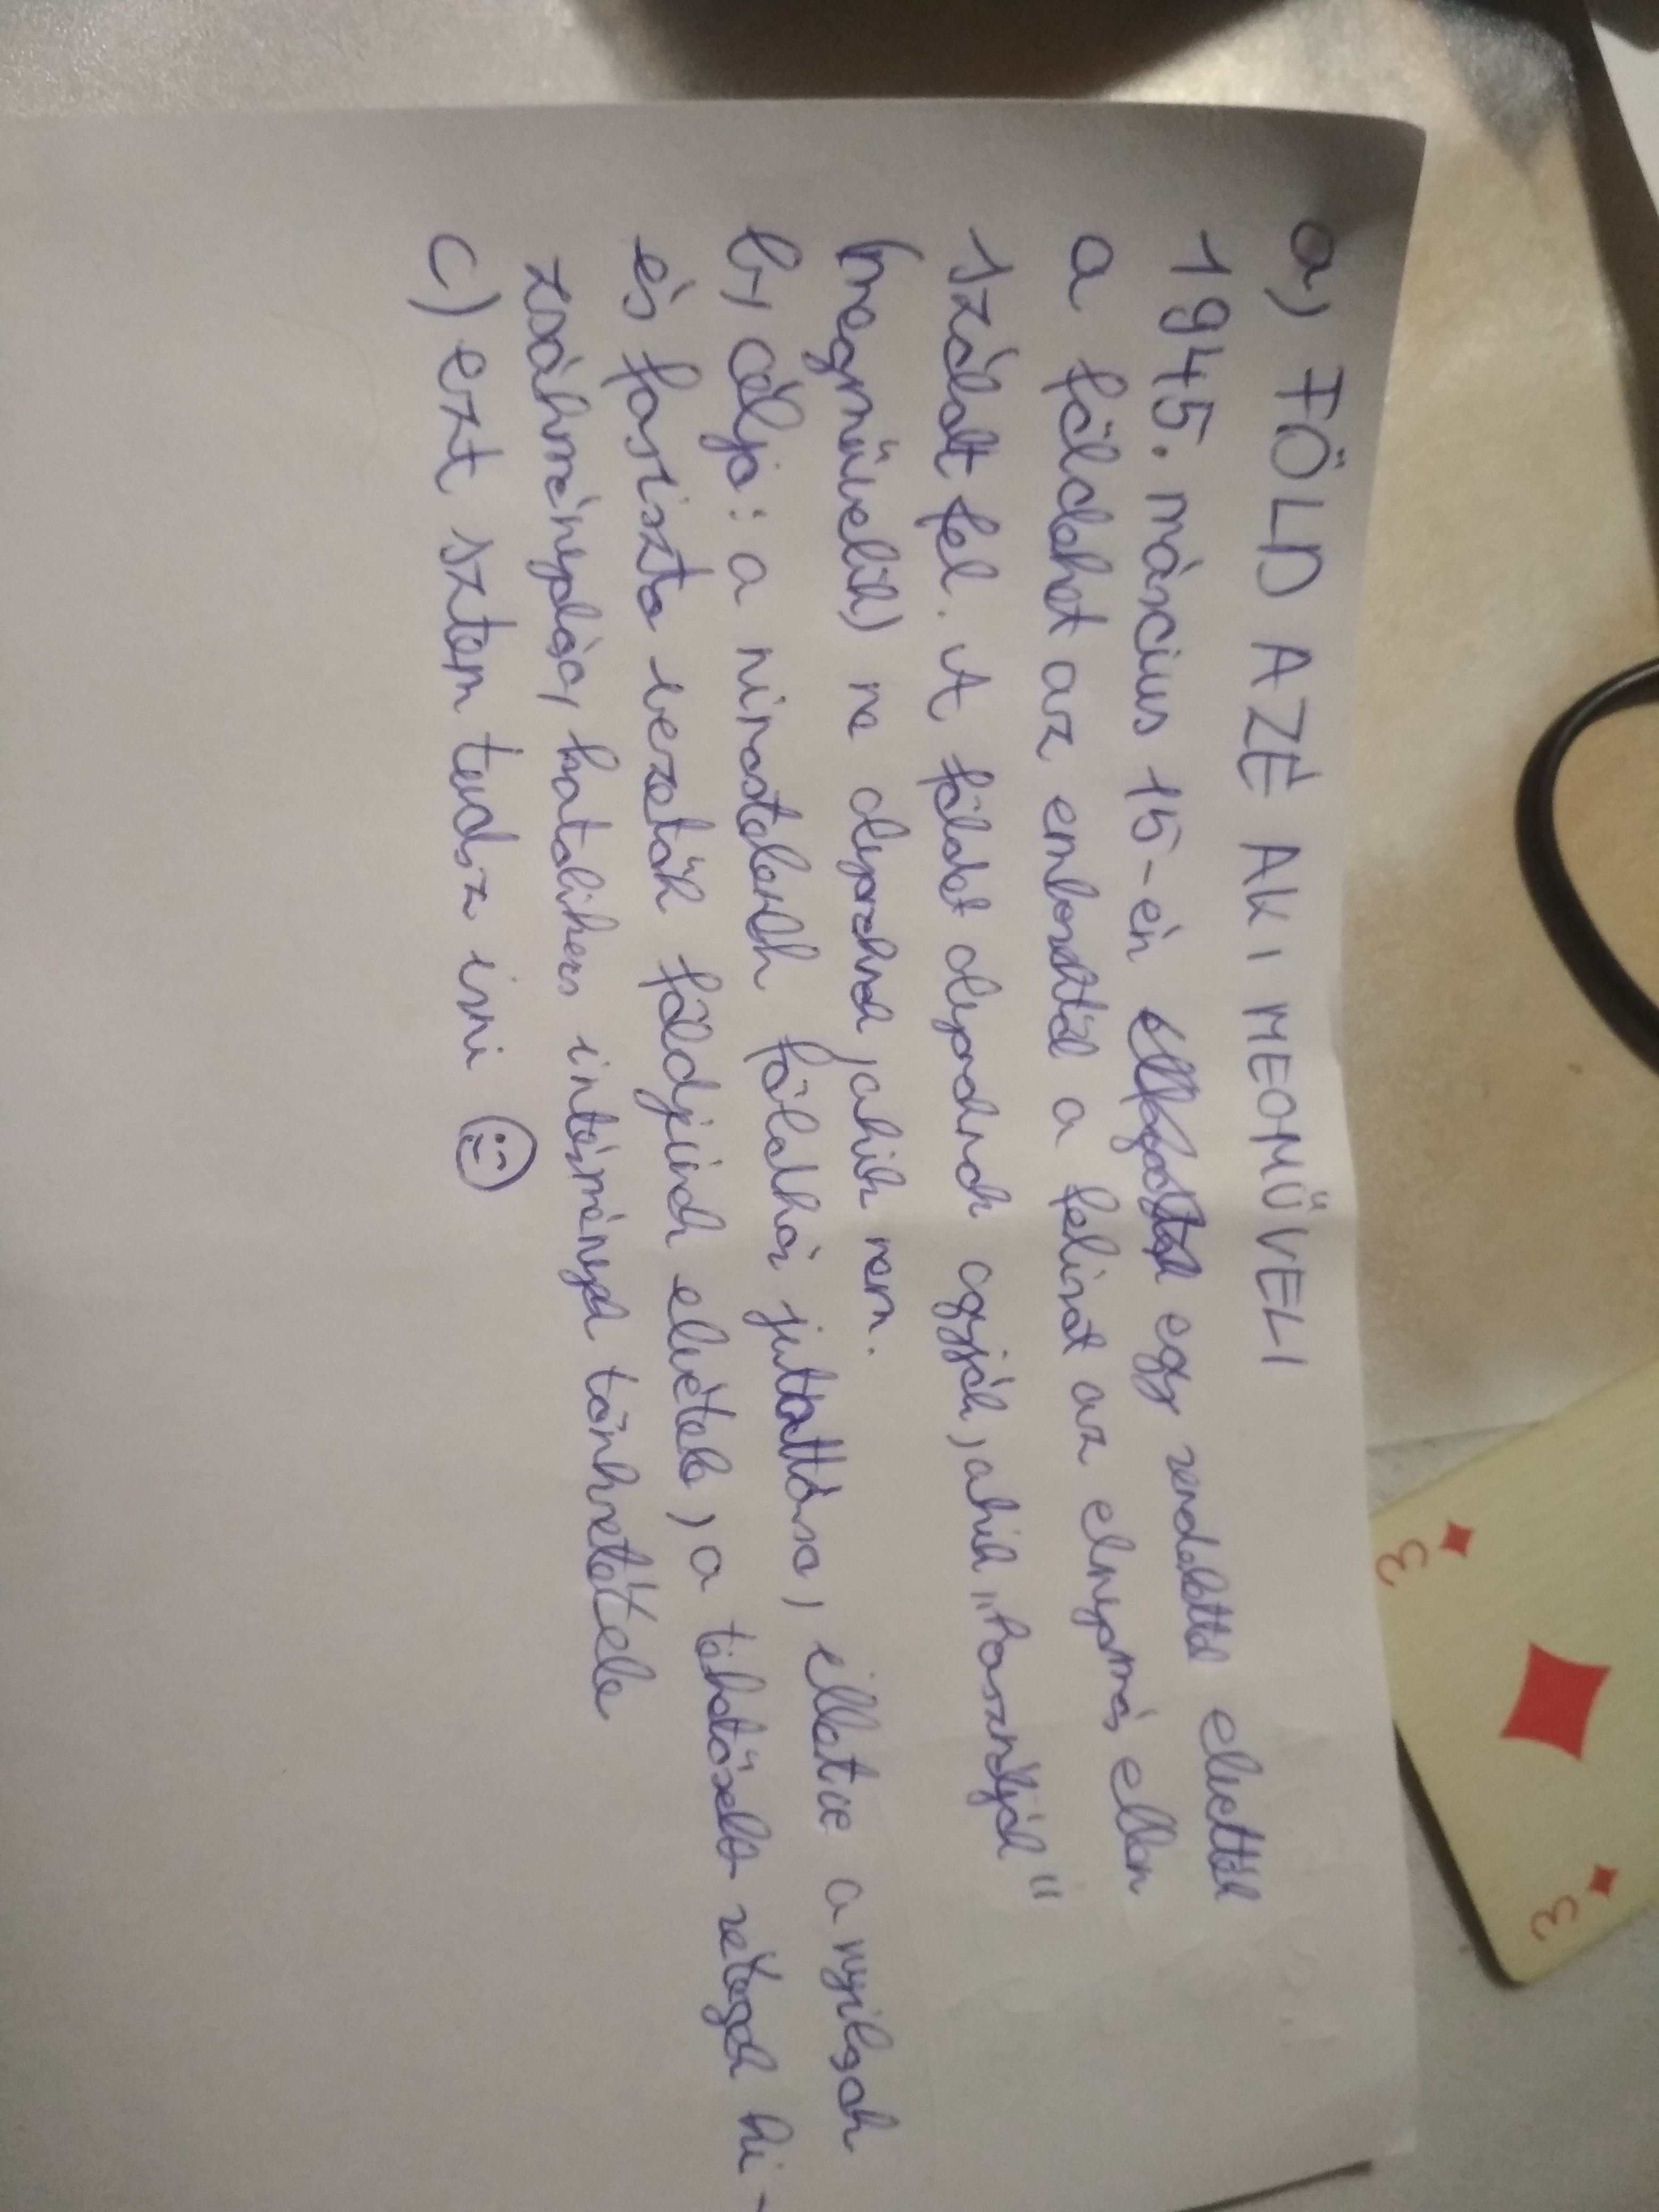 a) FÖLD AZÉ AKI MEGMŰVELI
1945. március 15-én egy rendelettel elvették
a földeket az emberektől a felirat az elnyomás ellen
szólalt fel. A földet olyanoknak agyják, akik „használják"
(megművelik) ne olyanoknak, akik nem.
b) célja: a nincstelenek földhöz juttatása, illetve a nyilasok
és fasiszta vezetők földjeinek elvétele, a tőkésebb rétegek ki-
zsákmányolása, katolikus intézmények tönkretétele
c) ezt sztem tudsz irni
3
3